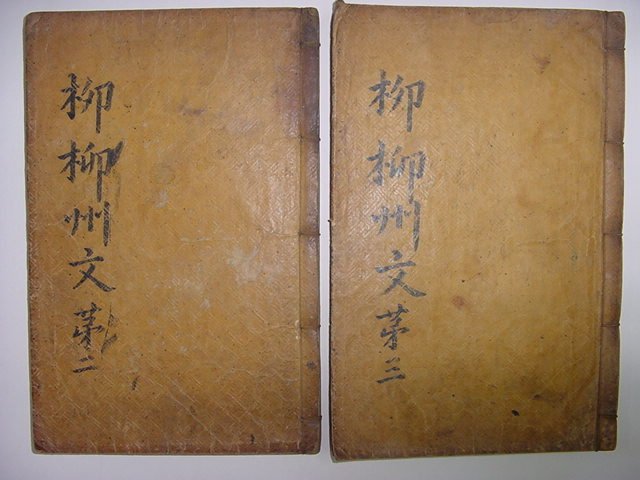 柳柳州文苐二
柳柳州文苐三